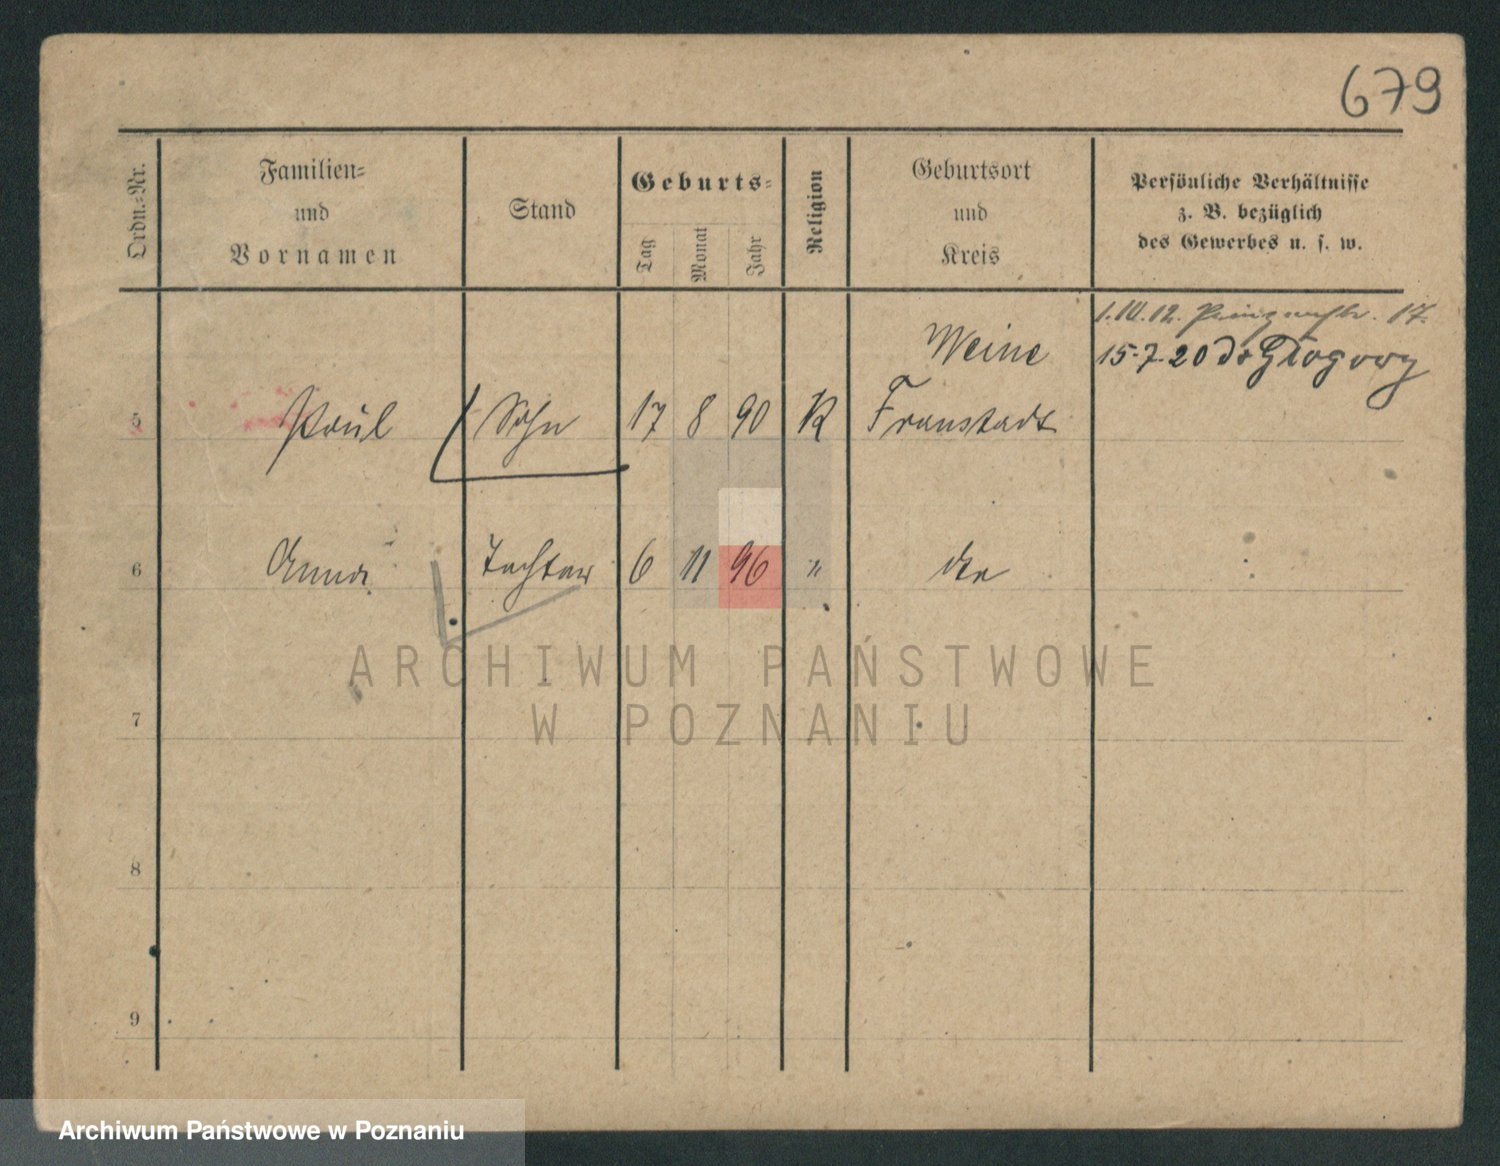 679
Ordn.-Nr.
Familien-
und
Vornamen
Stand
Geburts-
Tag
Monat
Jahr
Religion
Geburtsort
und
Kreis
Persönliche Verhältnisse
z. B. bezüglich
des Gewerbes u. s. w.
1.10.12. 17.
Weine
15-7-20 do Głogowy
5 Paul Sohn 17 8 90 K Fraustadt
6 Anna Tochter 6 11 96 "
7
8
9
ARCHIWUM PAŃSTWOWE
W POZNANIU
Archiwum Państwowe w Poznaniu